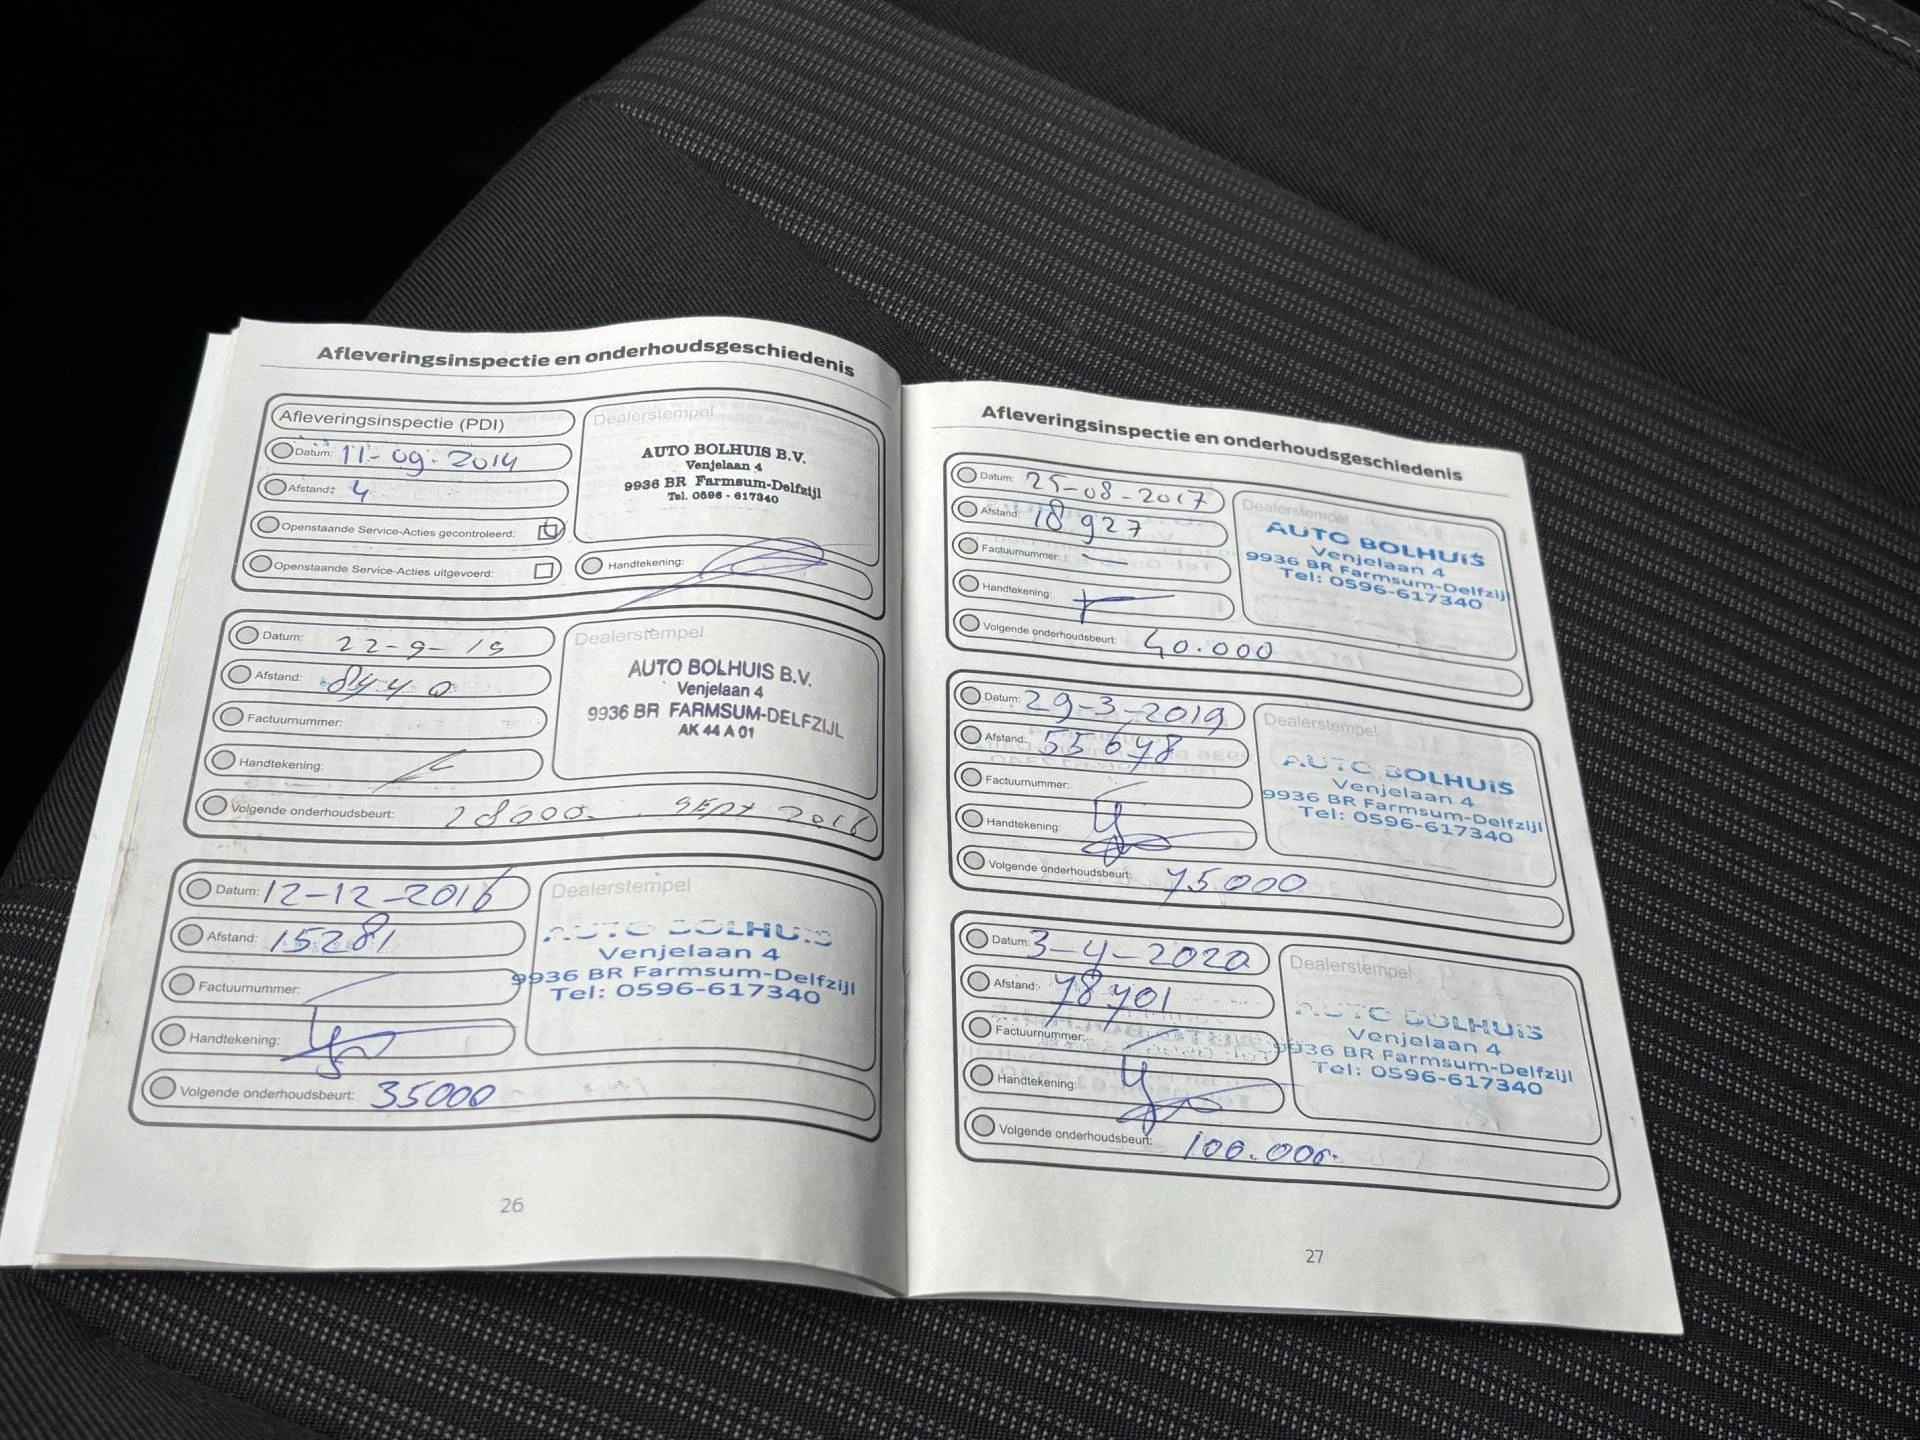 Afleveringsinspectie en onderhoudsgeschiedenis
Afleveringsinspectie (PDI)
Datum: 11-09-2014
Afstand: 4
Openstaande Service-Acties gecontroleerd:
Openstaande Service-Acties uitgevoerd:
Dealerstempel
AUTO BOLHUIS B.V.
Venjelaan 4
9936 BR Farmsum-Delfzijl
Tel. 0596 - 617340
Handtekening:
Datum: 22-9-15
Afstand: 8440
Factuurnummer:
Handtekening:
Volgende onderhoudsbeurt: 28000. SEPT 2016
Dealerstempel
AUTO BOLHUIS B.V.
Venjelaan 4
9936 BR FARMSUM-DELFZIJL
AK 44 A 01
Datum: 12-12-2016
Afstand: 15281
Factuurnummer:
Handtekening:
Volgende onderhoudsbeurt: 35000
Dealerstempel
AUTO BOLHUIS
Venjelaan 4
9936 BR Farmsum-Delfzijl
Tel: 0596-617340
26
Afleveringsinspectie en onderhoudsgeschiedenis
Datum: 25-08-2017
Afstand: 18927
Factuurnummer: -
Handtekening:
Volgende onderhoudsbeurt: 40.000
Dealerstempel
AUTO BOLHUIS
Venjelaan 4
9936 BR Farmsum-Delfzijl
Tel: 0596-617340
Datum: 29-3-2019
Afstand: 55648
Factuurnummer:
Handtekening:
Volgende onderhoudsbeurt: 75000
Dealerstempel
AUTO BOLHUIS
Venjelaan 4
9936 BR Farmsum-Delfzijl
Tel: 0596-617340
Datum: 3-4-2020
Afstand: 78701
Factuurnummer:
Handtekening:
Volgende onderhoudsbeurt: 100.000.
Dealerstempel
AUTO BOLHUIS
Venjelaan 4
9936 BR Farmsum-Delfzijl
Tel: 0596-617340
27